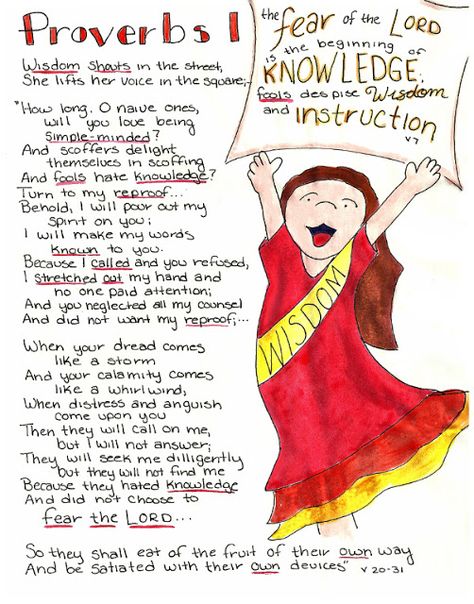 Proverbs 1
the fear of the LORD
is the beginning of
KNOWLEDGE;
fools despise Wisdom
and instruction
v7
Wisdom shouts in the street,
She lifts her voice in the square;
"How long, O naive ones,
will you love being
simple-minded?
And scoffers delight
themselves in scoffing
And fools hate knowledge?
Turn to my reproof...
Behold, I will pour out my
spirit on you;
I will make my words
known to you.
Because I called and you refused,
I stretched out my hand and
no one paid attention;
And you neglected all my counsel
And did not want my reproof;...
When your dread comes
like a storm
And your calamity comes
like a whirlwind,
When distress and anguish
come upon you
Then they will call on me,
but I will not answer;
They will seek me dilligently
but they will not find me
Because they hated knowledge
And did not choose to
fear the LORD...
So they shall eat of the fruit of their own way
And be satiated with their own devices" v 20-31
WISDOM